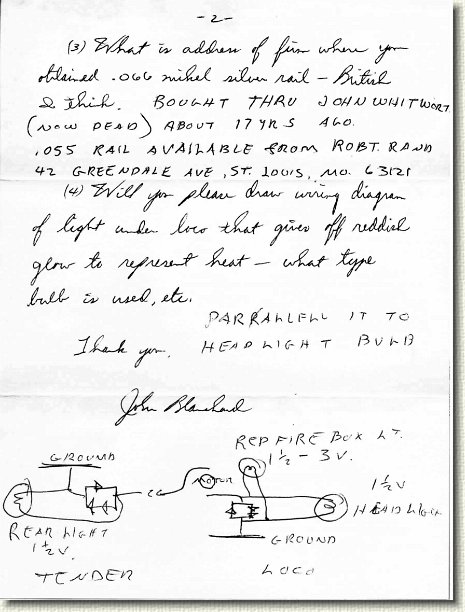 -2-
(3) What is address of firm where you
obtained .066 nickel silver rail — British
I think. BOUGHT THRU JOHN WHITWORT
(NOW DEAD) ABOUT 17 YRS AGO.
.055 RAIL AVAILABLE FROM ROBT. RAND
42 GREENDALE AVE, ST. LOUIS, MO. 63121
(4) Will you please draw wiring diagram
of light under loco that gives off reddish
glow to represent heat — what type
bulb is used, etc.
PARRALLELL IT TO
HEADLIGHT BULB
Thank you,
John Blanchard
RED FIRE BOX LT.
1½ - 3 V.
GROUND
MOTOR
1½ V
HEADLIGHT
REAR LIGHT
1½ V.
GROUND
TENDER
LOCO